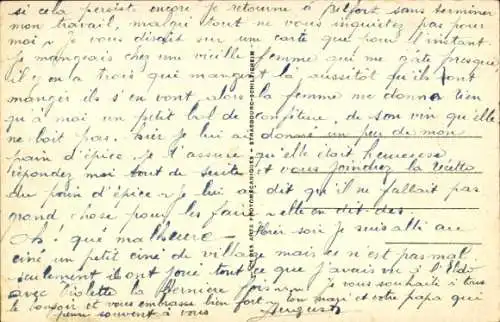 si cela persiste encore je retourne à Belfort sans terminer
mon travail, malgré tout ne vous inquiétez pas pour
moi. Je vous disait sur une carte que pour l'instant
je mangeais chez une vieille femme qui me gâte presque
il y en a trois qui mangent là aussitôt qu'ils ont
mangé ils s'en vont, alors la femme me donne rien
qu'à moi un petit bol de confiture, de son vin qu'elle
ne boit pas. Hier je lui ai donné un peu de mon
pain d'épice. Je t'assure qu'elle était heureuse
répondez moi tout de suite et vous joindrez la recette
du pain d'épice. Je lui ai dit qu'il ne fallait pas
grand chose pour les faire elle en dit des:
Oh! qué malheure - Hier soir je suis allé au
ciné un petit ciné de village mais ce n'est pas mal
seulement ils ont joué tout ce que j'avais vu à l'Eldo
avec Violette la dernière fois. je vous souhaite à tous
le bonsoir et vous embrasse bien fort ton mari et votre papa qui
pense souvent à vous August
STRASBOURG-SCHILTIGHEIM